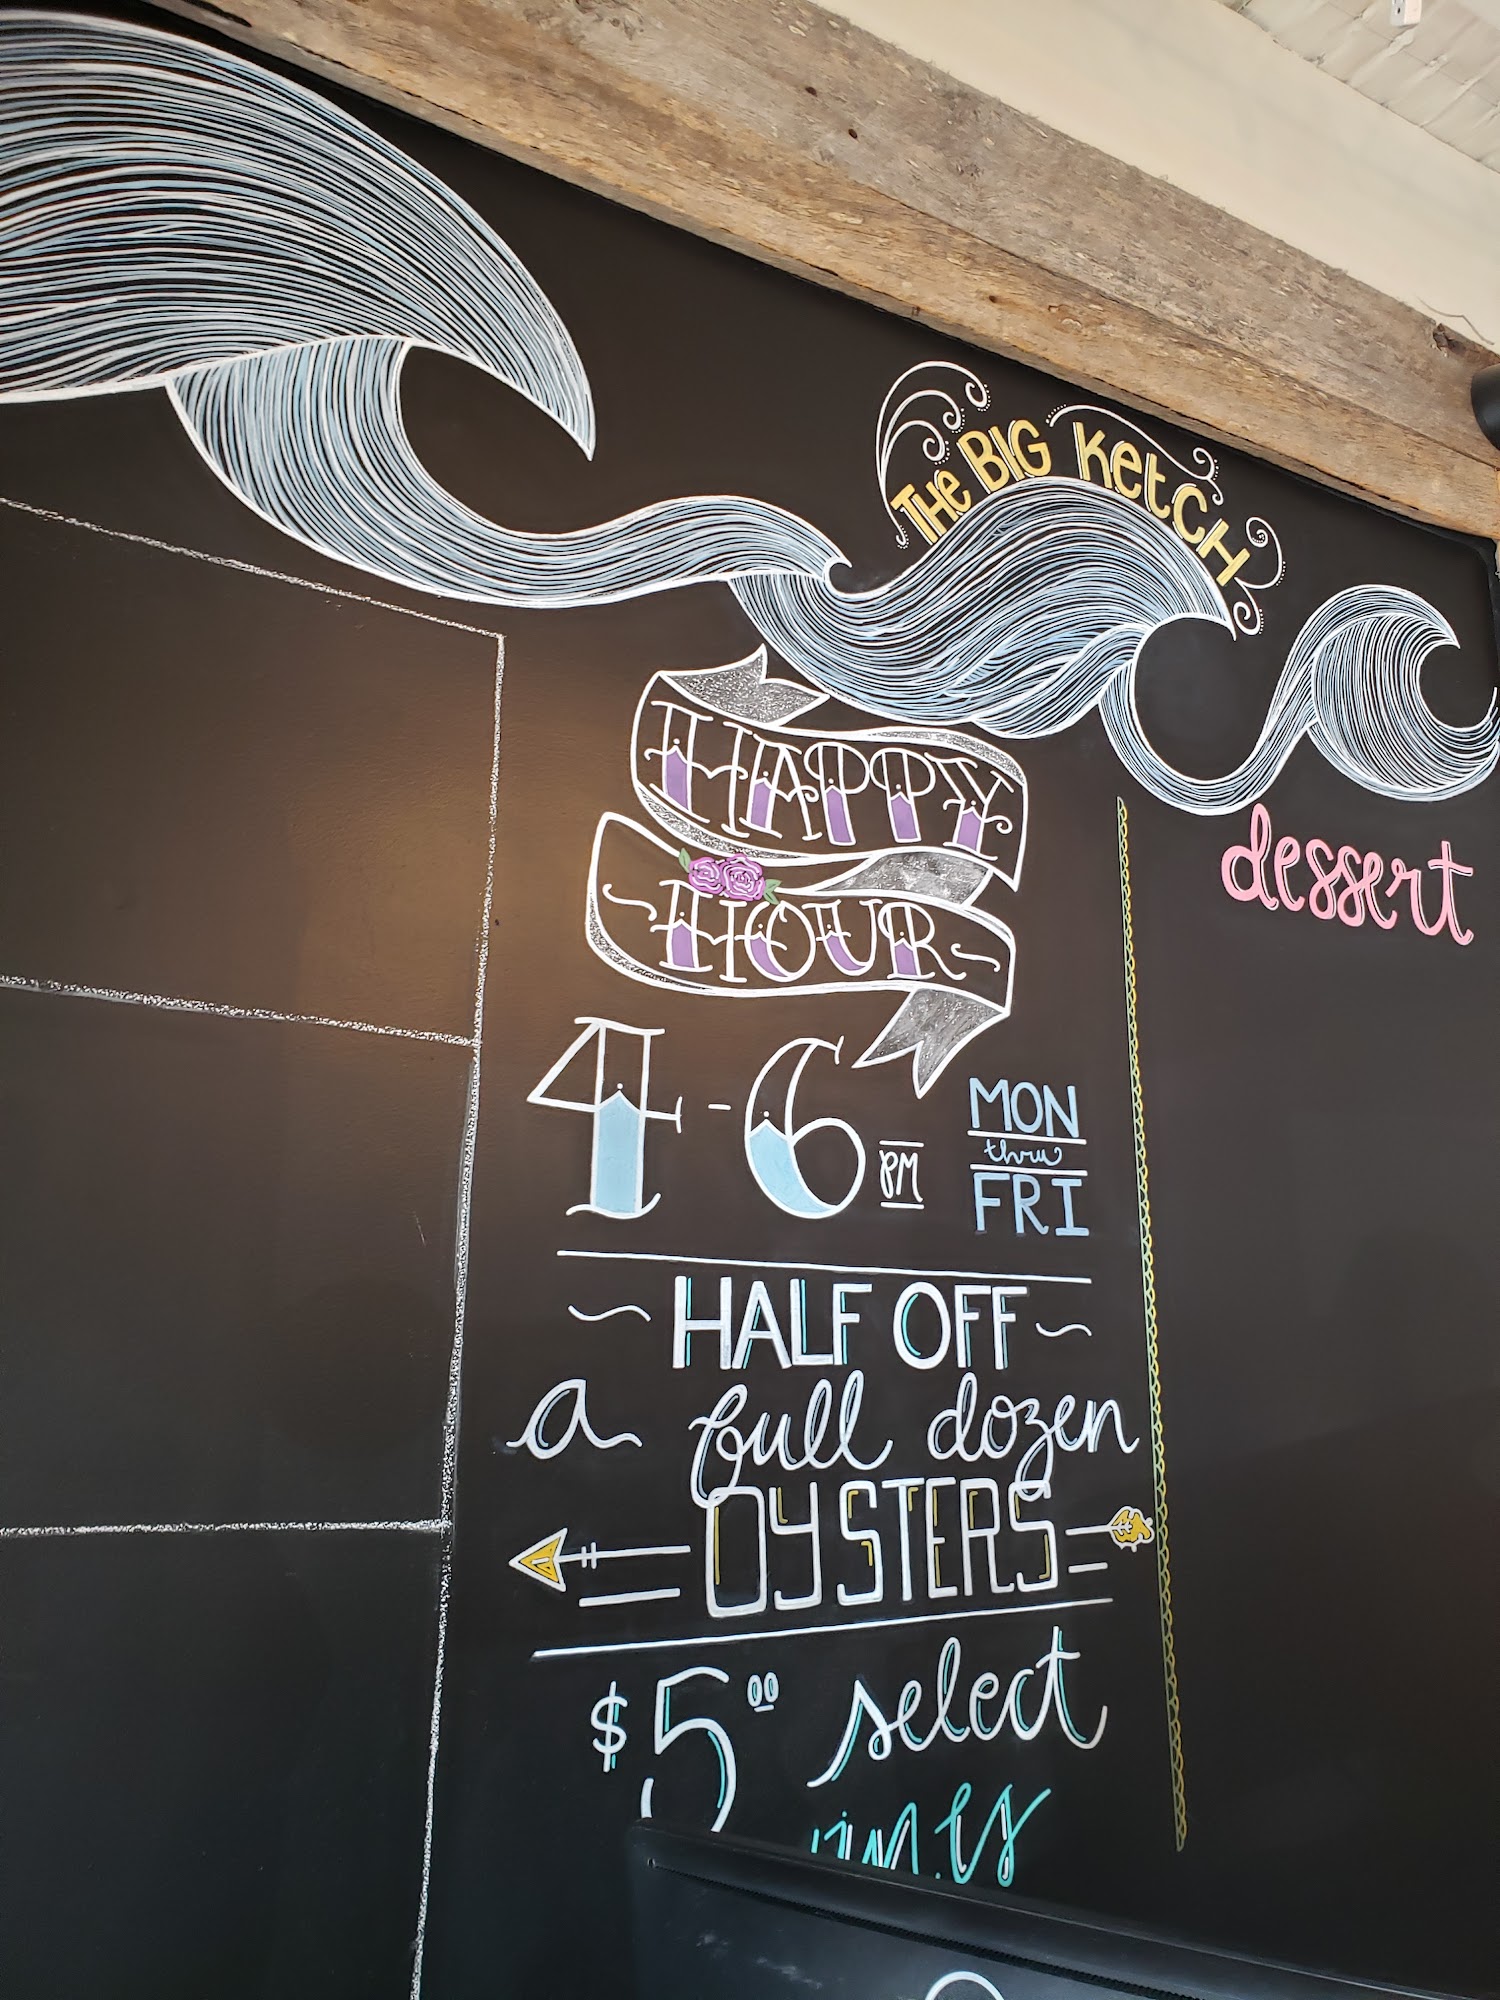 THe BIG KetCH
HAPPY
HOUR
4-6 PM
MON
thru
FRI
HALF OFF
a full dozen
OYSTERS
$5.00 select
dessert